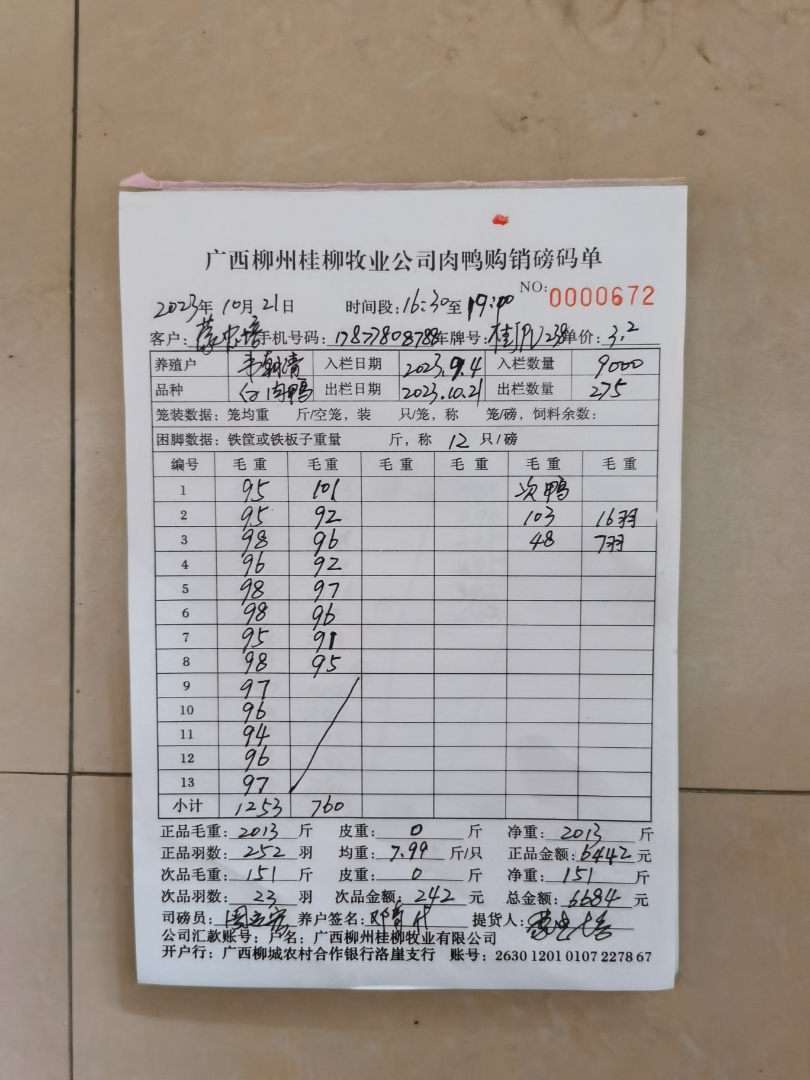 广西柳州桂柳牧业公司肉鸭购销磅码单
NO: 0000672
2023年 10月 21日 时间段: 16:30至 19:00
客户: 手机号码: 17877808788 车牌号: 单价: 3.2
养殖户 韦朝清 入栏日期 2023.9.4 入栏数量 9000
品种 白肉鸭 出栏日期 2023.10.21 出栏数量 275
笼装数据: 笼均重 斤/空笼, 装 只/笼, 称 笼/磅, 饲料余数:
困脚数据: 铁筐或铁板子重量 斤, 称 12 只/磅
编号 毛重 毛重 毛重 毛重 毛重 毛重
1 95 101 次鸭
2 95 92 103 16羽
3 98 96 48 7羽
4 96 92
5 98 97
6 98 96
7 95 91
8 98 95
9 97
10 96
11 94
12 96
13 97
小计 1253 760
正品毛重: 2013 斤 皮重: 0 斤 净重: 2013 斤
正品羽数: 252 羽 均重: 7.99 斤/只 正品金额: 6442 元
次品毛重: 151 斤 皮重: 0 斤 净重: 151 斤
次品羽数: 23 羽 次品金额: 242 元 总金额: 6684 元
司磅员: 养户签名: 提货人:
公司汇款账号: 户名: 广西柳州桂柳牧业有限公司
开户行: 广西柳城农村合作银行洛崖支行 账号: 2630 1201 0107 2278 67